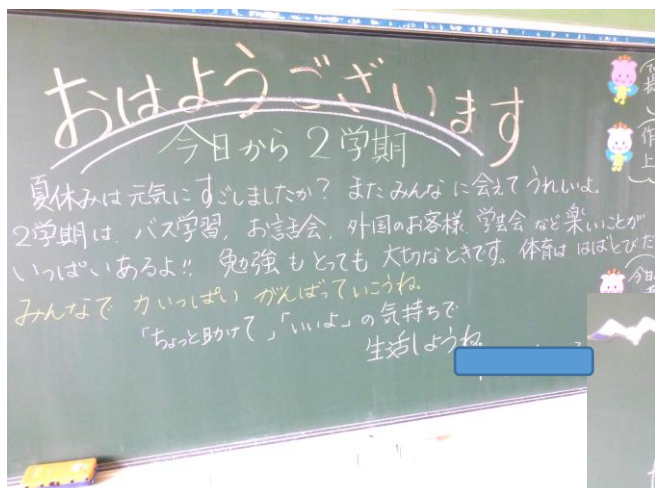 おはようございます
今日から2学期
夏休みは元気にすごしましたか? またみんなに会えてうれしいよ。
2学期は、バス学習、お話会、外国のお客様、学芸会など楽しいことが
いっぱいあるよ!! 勉強もとっても大切なときです。体育ははばとびだ
みんなで力いっぱいがんばっていこうね。
「ちょっと助けて」「いいよ」の気持ちで
生活しようね。
作
上
今日